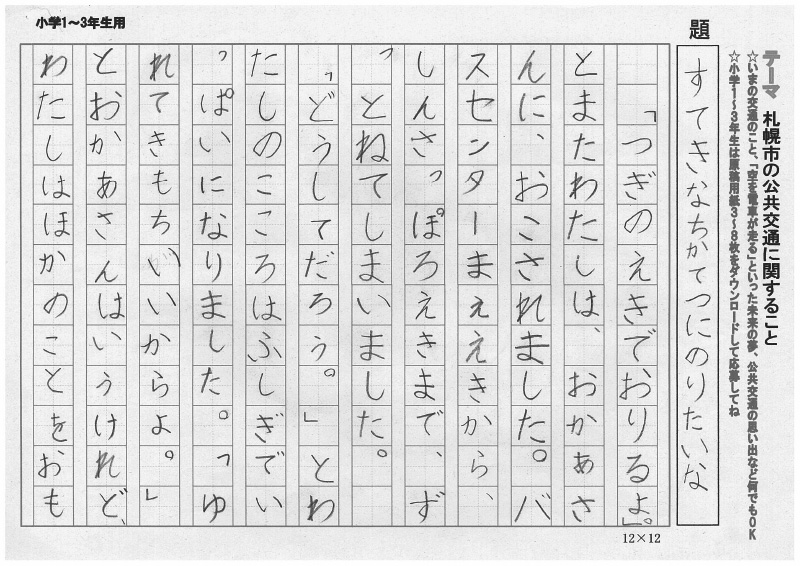 小学1〜3年生用
テーマ 札幌市の公共交通に関すること
☆いまの交通のこと、「空を電車が走る」といった未来の夢、公共交通の思い出など何でもOK
☆小学1〜3年生は原稿用紙3〜8枚をダウンロードして応募してね
題
すてきなちかてつにのりたいな
「つぎのえきでおりるよ。」
とまたわたしは、おかあさ
んに、おこされました。バ
スセンターまええきから、
しんさっぽろえきまで、ず
っとねてしまいました。
「どうしてだろう。」とわ
たしのこころはふしぎでい
っぱいになりました。「ゆ
れてきもちいいからよ。」
とおかあさんはいうけれど、
わたしはほかのことをおも
12×12